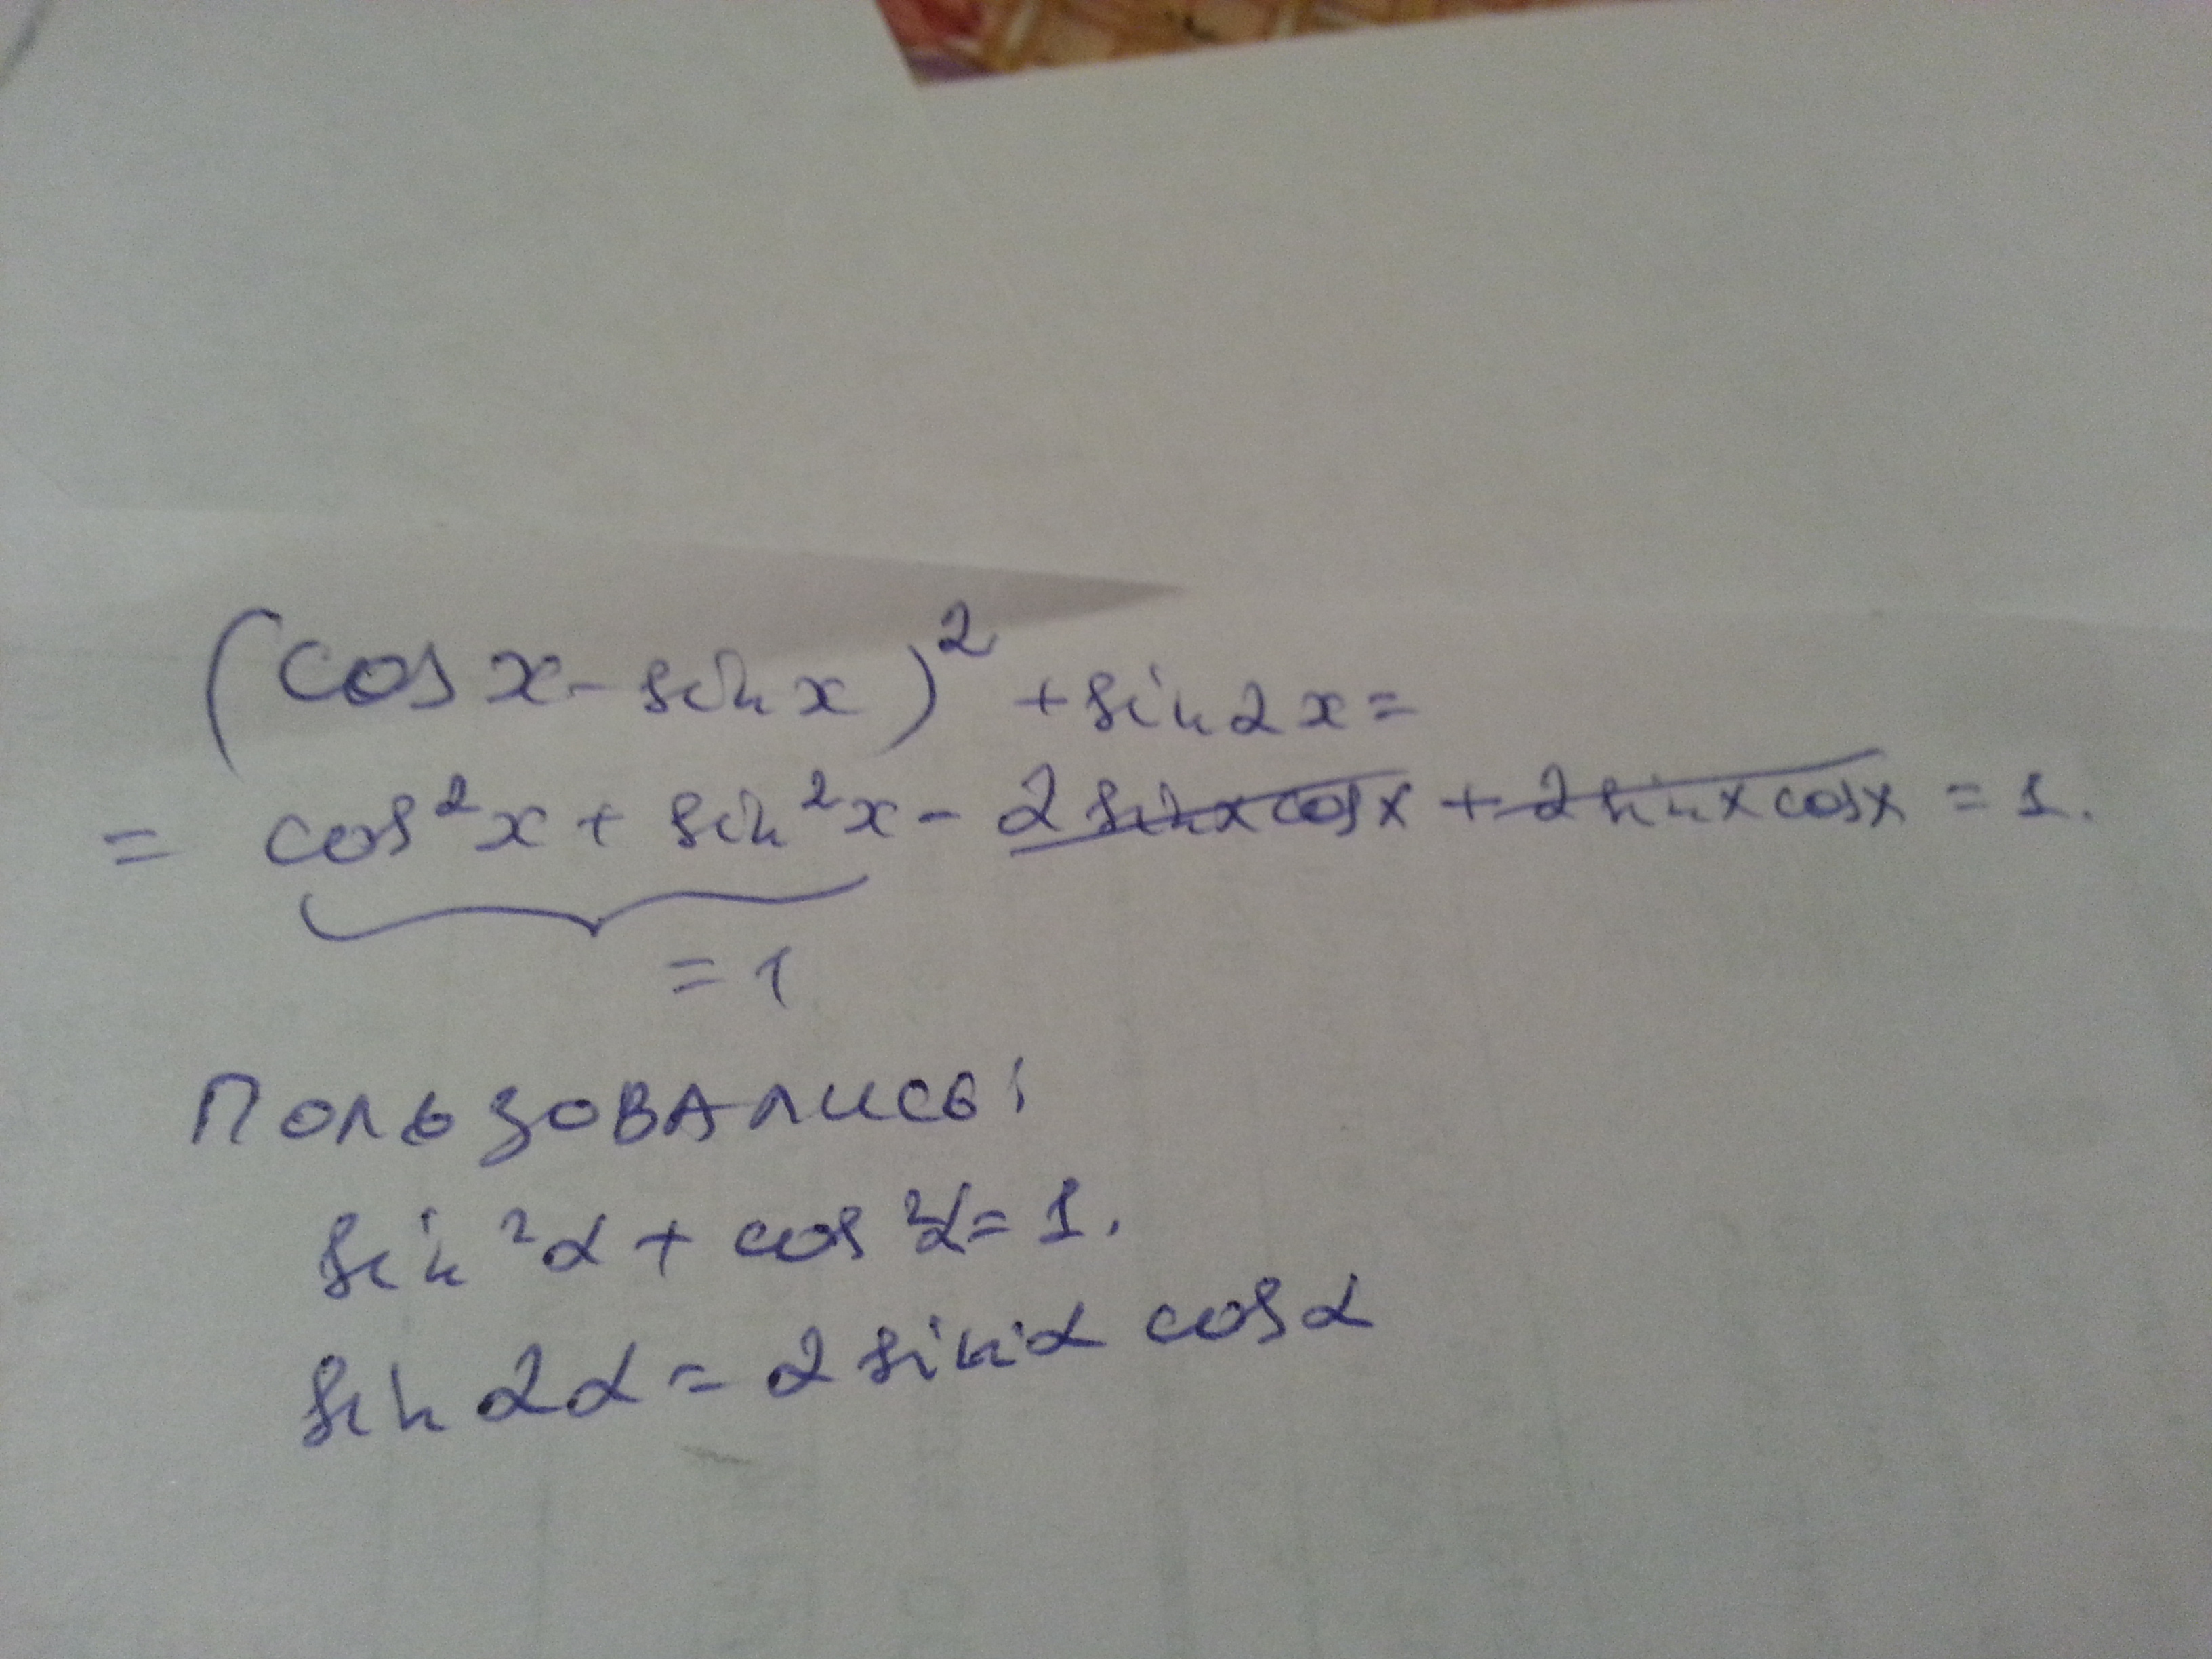 (cos x - sin x)² + sin 2x =
= cos²x + sin²x - 2 sin x cos x + 2 sin x cos x = 1.
= 1
Пользовались:
sin²α + cos²α = 1.
sin 2α = 2 sin α cos α